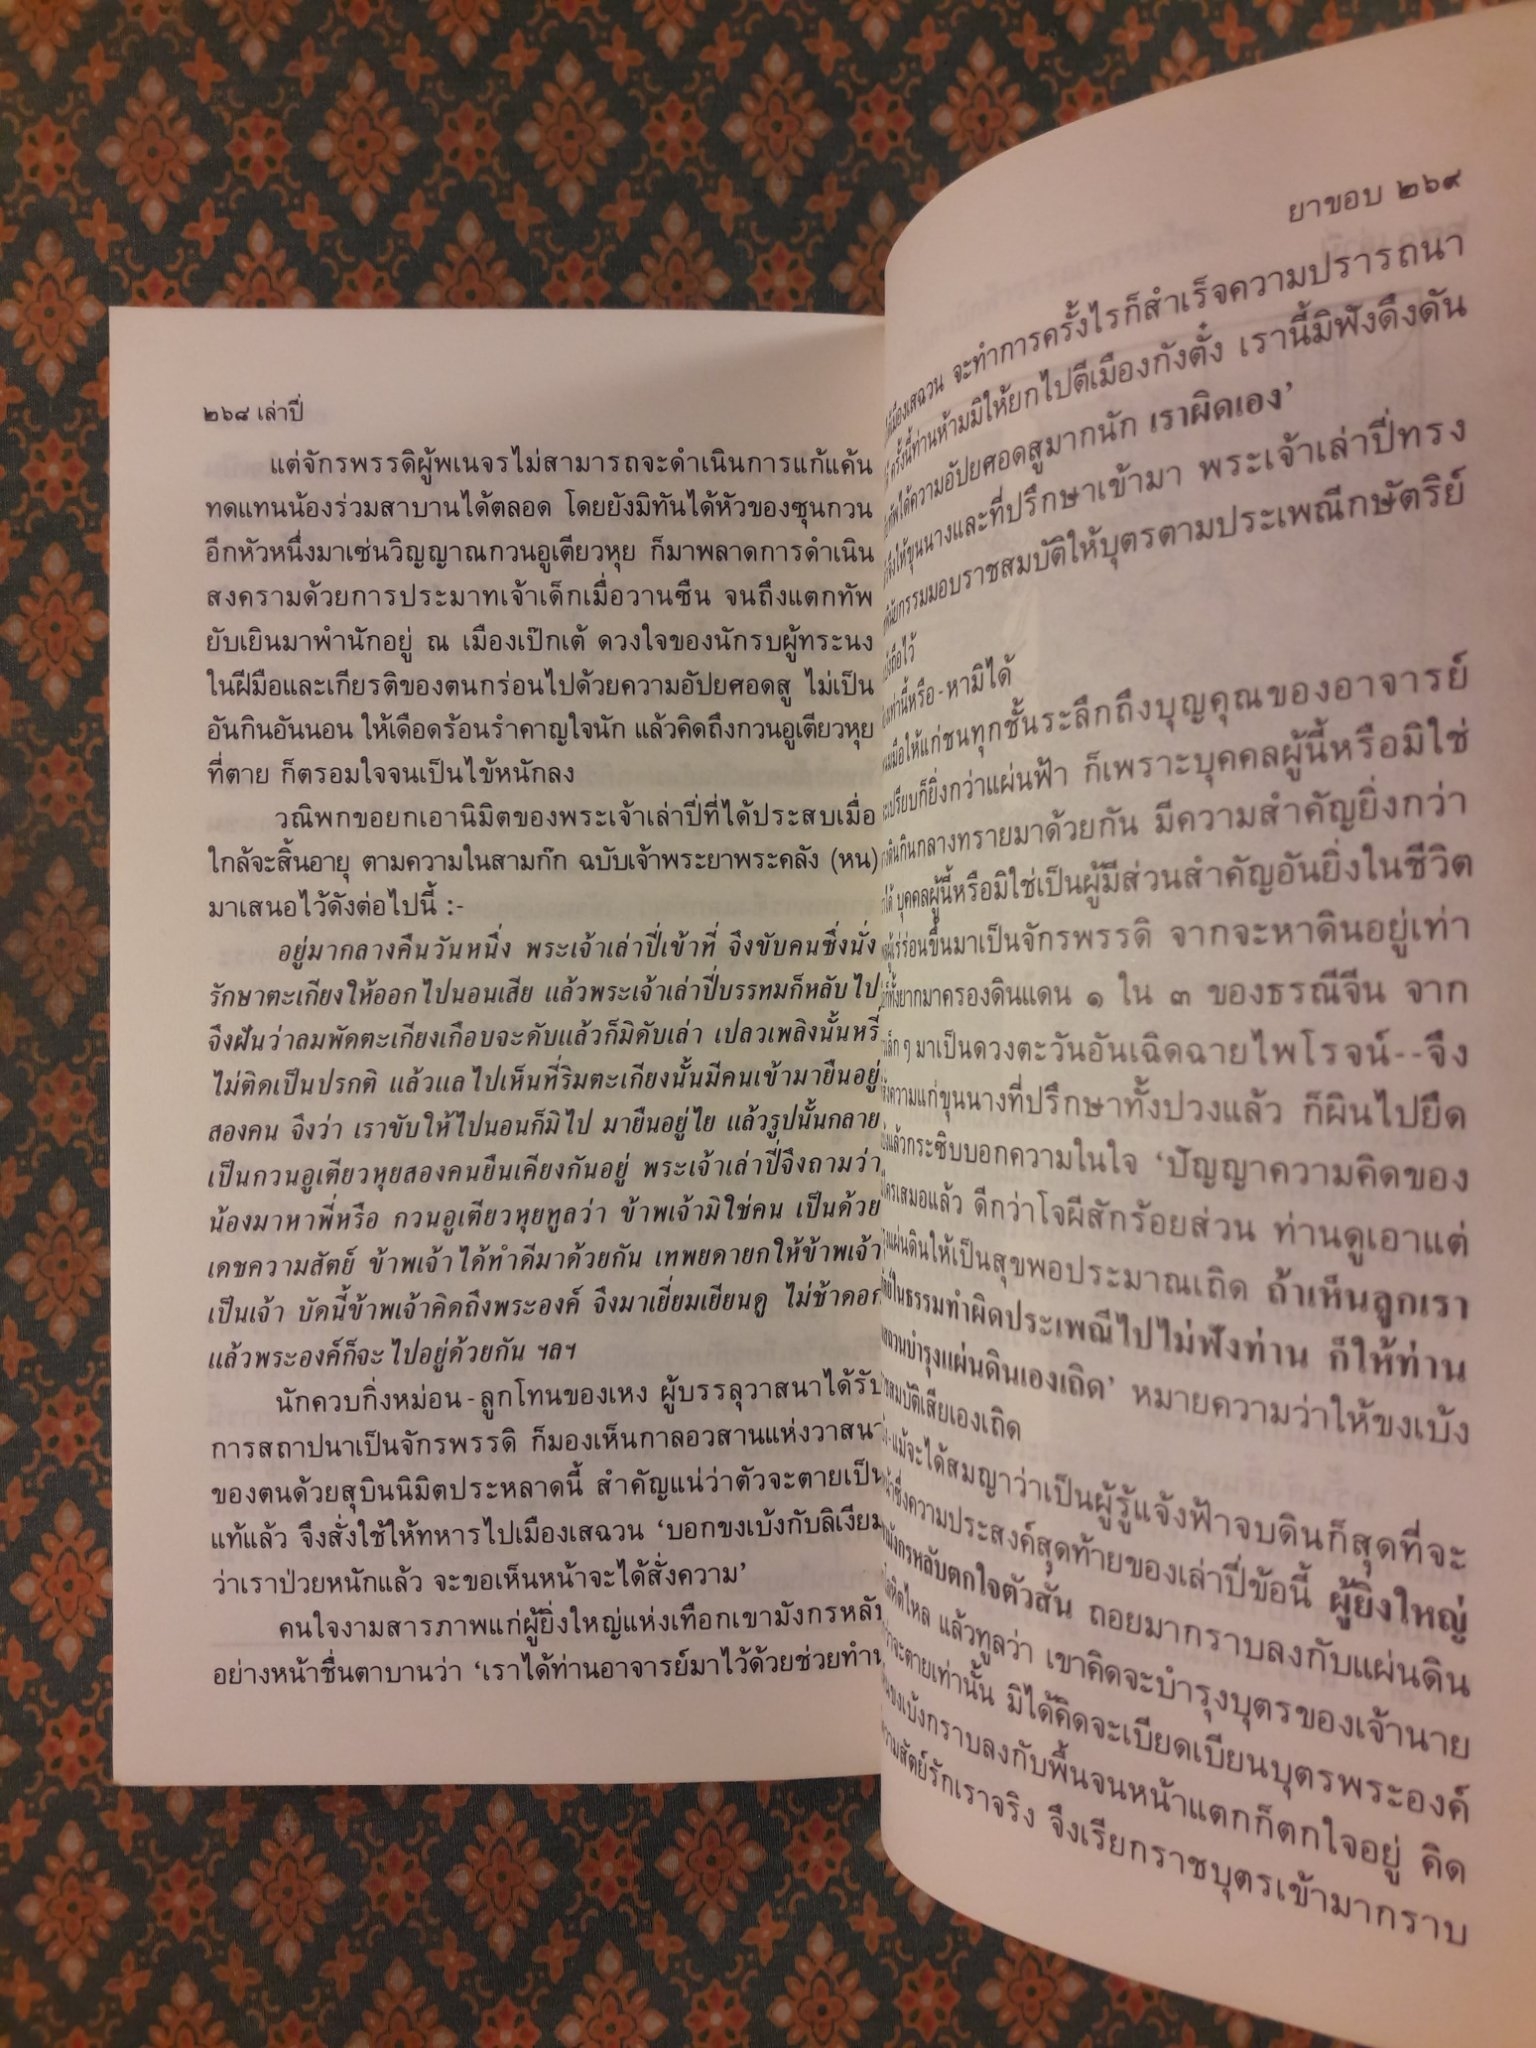 ๒๖๘ เล่าปี่
แต่จักรพรรดิผู้พเนจรไม่สามารถจะดำเนินการแก้แค้น
ทดแทนน้องร่วมสาบานได้ตลอด โดยยังมิทันได้หัวของซุนกวน
อีกหัวหนึ่งมาเซ่นวิญญาณกวนอูเตียวหุย ก็มาพลาดการดำเนิน
สงครามด้วยการประมาทเจ้าเด็กเมื่อวานซืน จนถึงแตกทัพ
ยับเยินมาพำนักอยู่ ณ เมืองเป๊กเต้ ดวงใจของนักรบผู้ทระนง
ในฝีมือและเกียรติของตนกร่อนไปด้วยความอัปยศอดสู ไม่เป็น
อันกินอันนอน ให้เดือดร้อนรำคาญใจนัก แล้วคิดถึงกวนอูเตียวหุย
ที่ตาย ก็ตรอมใจจนเป็นไข้หนักลง
วณิพกขอยกเอานิมิตของพระเจ้าเล่าปี่ที่ได้ประสบเมื่อ
ใกล้จะสิ้นอายุ ตามความในสามก๊ก ฉบับเจ้าพระยาพระคลัง (หน)
มาเสนอไว้ดังต่อไปนี้ :-
อยู่มากลางคืนวันหนึ่ง พระเจ้าเล่าปี่เข้าที่ จึงขับคนซึ่งนั่ง
รักษาตะเกียงให้ออกไปนอนเสีย แล้วพระเจ้าเล่าปี่บรรทมก็หลับไป
จึงฝันว่าลมพัดตะเกียงเกือบจะดับแล้วก็มิดับเล่า เปลวเพลิงนั้นหรี่
ไม่ติดเป็นปรกติ แล้วแลไปเห็นที่ริมตะเกียงนั้นมีคนเข้ามายืนอยู่
สองคน จึงว่า เราขับให้ไปนอนก็มิไป มายืนอยู่ไย แล้วรูปนั้นกลาย
เป็นกวนอูเตียวหุยสองคนยืนเคียงกันอยู่ พระเจ้าเล่าปี่จึงถามว่า
น้องมาหาพี่หรือ กวนอูเตียวหุยทูลว่า ข้าพเจ้ามิใช่คน เป็นด้วย
เดชความสัตย์ ข้าพเจ้าได้ทำดีมาด้วยกัน เทพยดายกให้ข้าพเจ้า
เป็นเจ้า บัดนี้ข้าพเจ้าคิดถึงพระองค์ จึงมาเยี่ยมเยียนดู ไม่ช้าดอก
แล้วพระองค์ก็จะไปอยู่ด้วยกัน ฯลฯ
นักควบกิ่งหม่อน-ลูกโทนของเหง ผู้บรรลุวาสนาได้รับ
การสถาปนาเป็นจักรพรรดิ ก็มองเห็นกาลอวสานแห่งวาสนา
ของตนด้วยสุบินนิมิตประหลาดนี้ สำคัญแน่ว่าตัวจะตายเป็น
แท้แล้ว จึงสั่งใช้ให้ทหารไปเมืองเสฉวน ‘บอกขงเบ้งกับลิเงียม
ว่าเราป่วยหนักแล้ว จะขอเห็นหน้าจะได้สั่งความ’
คนใจงามสารภาพแก่ผู้ยิ่งใหญ่แห่งเทือกเขามังกรหลับ
อย่างหน้าชื่นตาบานว่า ‘เราได้ท่านอาจารย์มาไว้ด้วยช่วยทำนุ
ยาขอบ ๒๖๙
เมืองเสฉวน จะทำการครั้งไรก็สำเร็จความปรารถนา
ครั้งนี้ท่านห้ามมิให้ยกไปตีเมืองกังตั๋ง เรานี้มิฟังดึงดัน
ได้ความอัปยศอดสูมากนัก เราผิดเอง’
ให้ขุนนางและที่ปรึกษาเข้ามา พระเจ้าเล่าปี่ทรง
พินัยกรรมมอบราชสมบัติให้บุตรตามประเพณีกษัตริย์
ถือไว้
เท่านี้หรือ-หามิได้
มือให้แก่ชนทุกชั้นระลึกถึงบุญคุณของอาจารย์
เปรียบก็ยิ่งกว่าแผ่นฟ้า ก็เพราะบุคคลผู้นี้หรือมิใช่
กินกลางทรายมาด้วยกัน มีความสำคัญยิ่งกว่า
บุคคลผู้นี้หรือมิใช่เป็นผู้มีส่วนสำคัญอันยิ่งในชีวิต
ร่อนขึ้นมาเป็นจักรพรรดิ จากจะหาดินอยู่เท่า
ยากมาครองดินแดน ๑ ใน ๓ ของธรณีจีน จาก
เล็ก ๆ มาเป็นดวงตะวันอันเฉิดฉายไพโรจน์--จึง
ความแก่ขุนนางที่ปรึกษาทั้งปวงแล้ว ก็ผินไปยึด
แล้วกระซิบบอกความในใจ ‘ปัญญาความคิดของ
ใครเสมอแล้ว ดีกว่าโจผีสักร้อยส่วน ท่านดูเอาแต่
แผ่นดินให้เป็นสุขพอประมาณเถิด ถ้าเห็นลูกเรา
ในธรรมทำผิดประเพณีไปไม่ฟังท่าน ก็ให้ท่าน
บำรุงแผ่นดินเองเถิด’ หมายความว่าให้ขงเบ้ง
สมบัติเสียเองเถิด
แม้จะได้สมญาว่าเป็นผู้รู้แจ้งฟ้าจบดินก็สุดที่จะ
ซึ่งความประสงค์สุดท้ายของเล่าปี่ข้อนี้ ผู้ยิ่งใหญ่
มังกรหลับตกใจตัวสั่น ถอยมากราบลงกับแผ่นดิน
ไหล แล้วทูลว่า เขาคิดจะบำรุงบุตรของเจ้านาย
จะตายเท่านั้น มิได้คิดจะเบียดเบียนบุตรพระองค์
ขงเบ้งกราบลงกับพื้นจนหน้าแตกก็ตกใจอยู่ คิด
ความสัตย์รักเราจริง จึงเรียกราชบุตรเข้ามากราบ